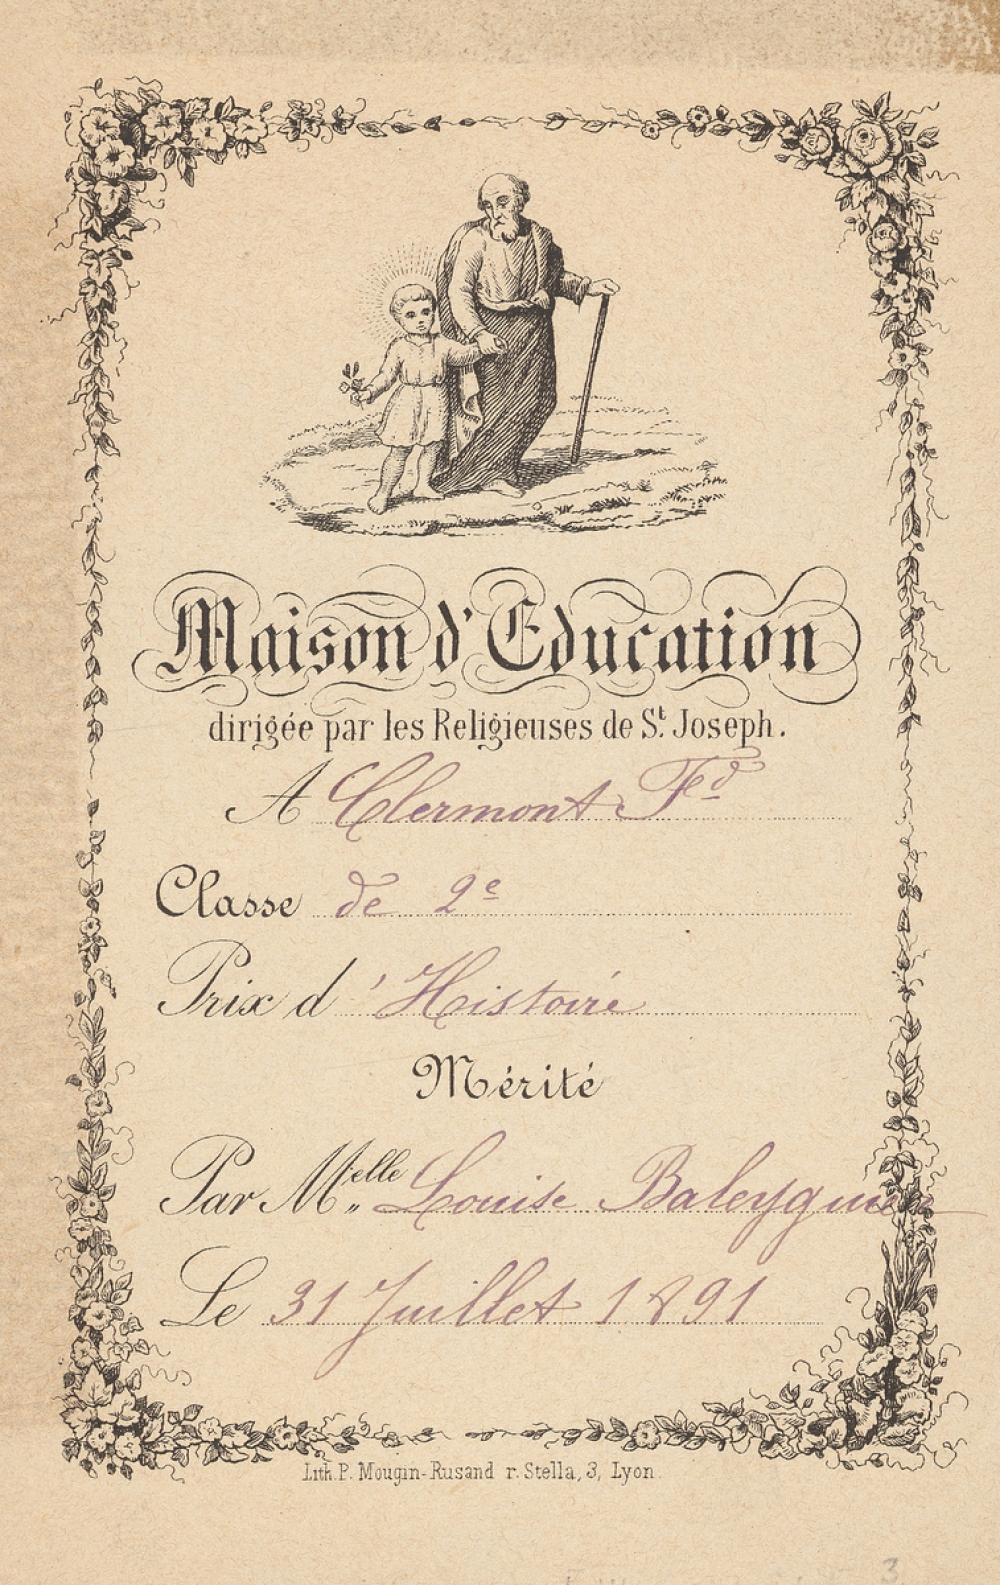 Maison d'Education
dirigée par les Religieuses de St. Joseph.
A Clermont Fd
Classe de 2e
Prix d'Histoire
Mérité
Par Melle Louise Baleyguier
Le 31 Juillet 1891
Lith. P. Mougin-Rusand r. Stella, 3, Lyon.
3